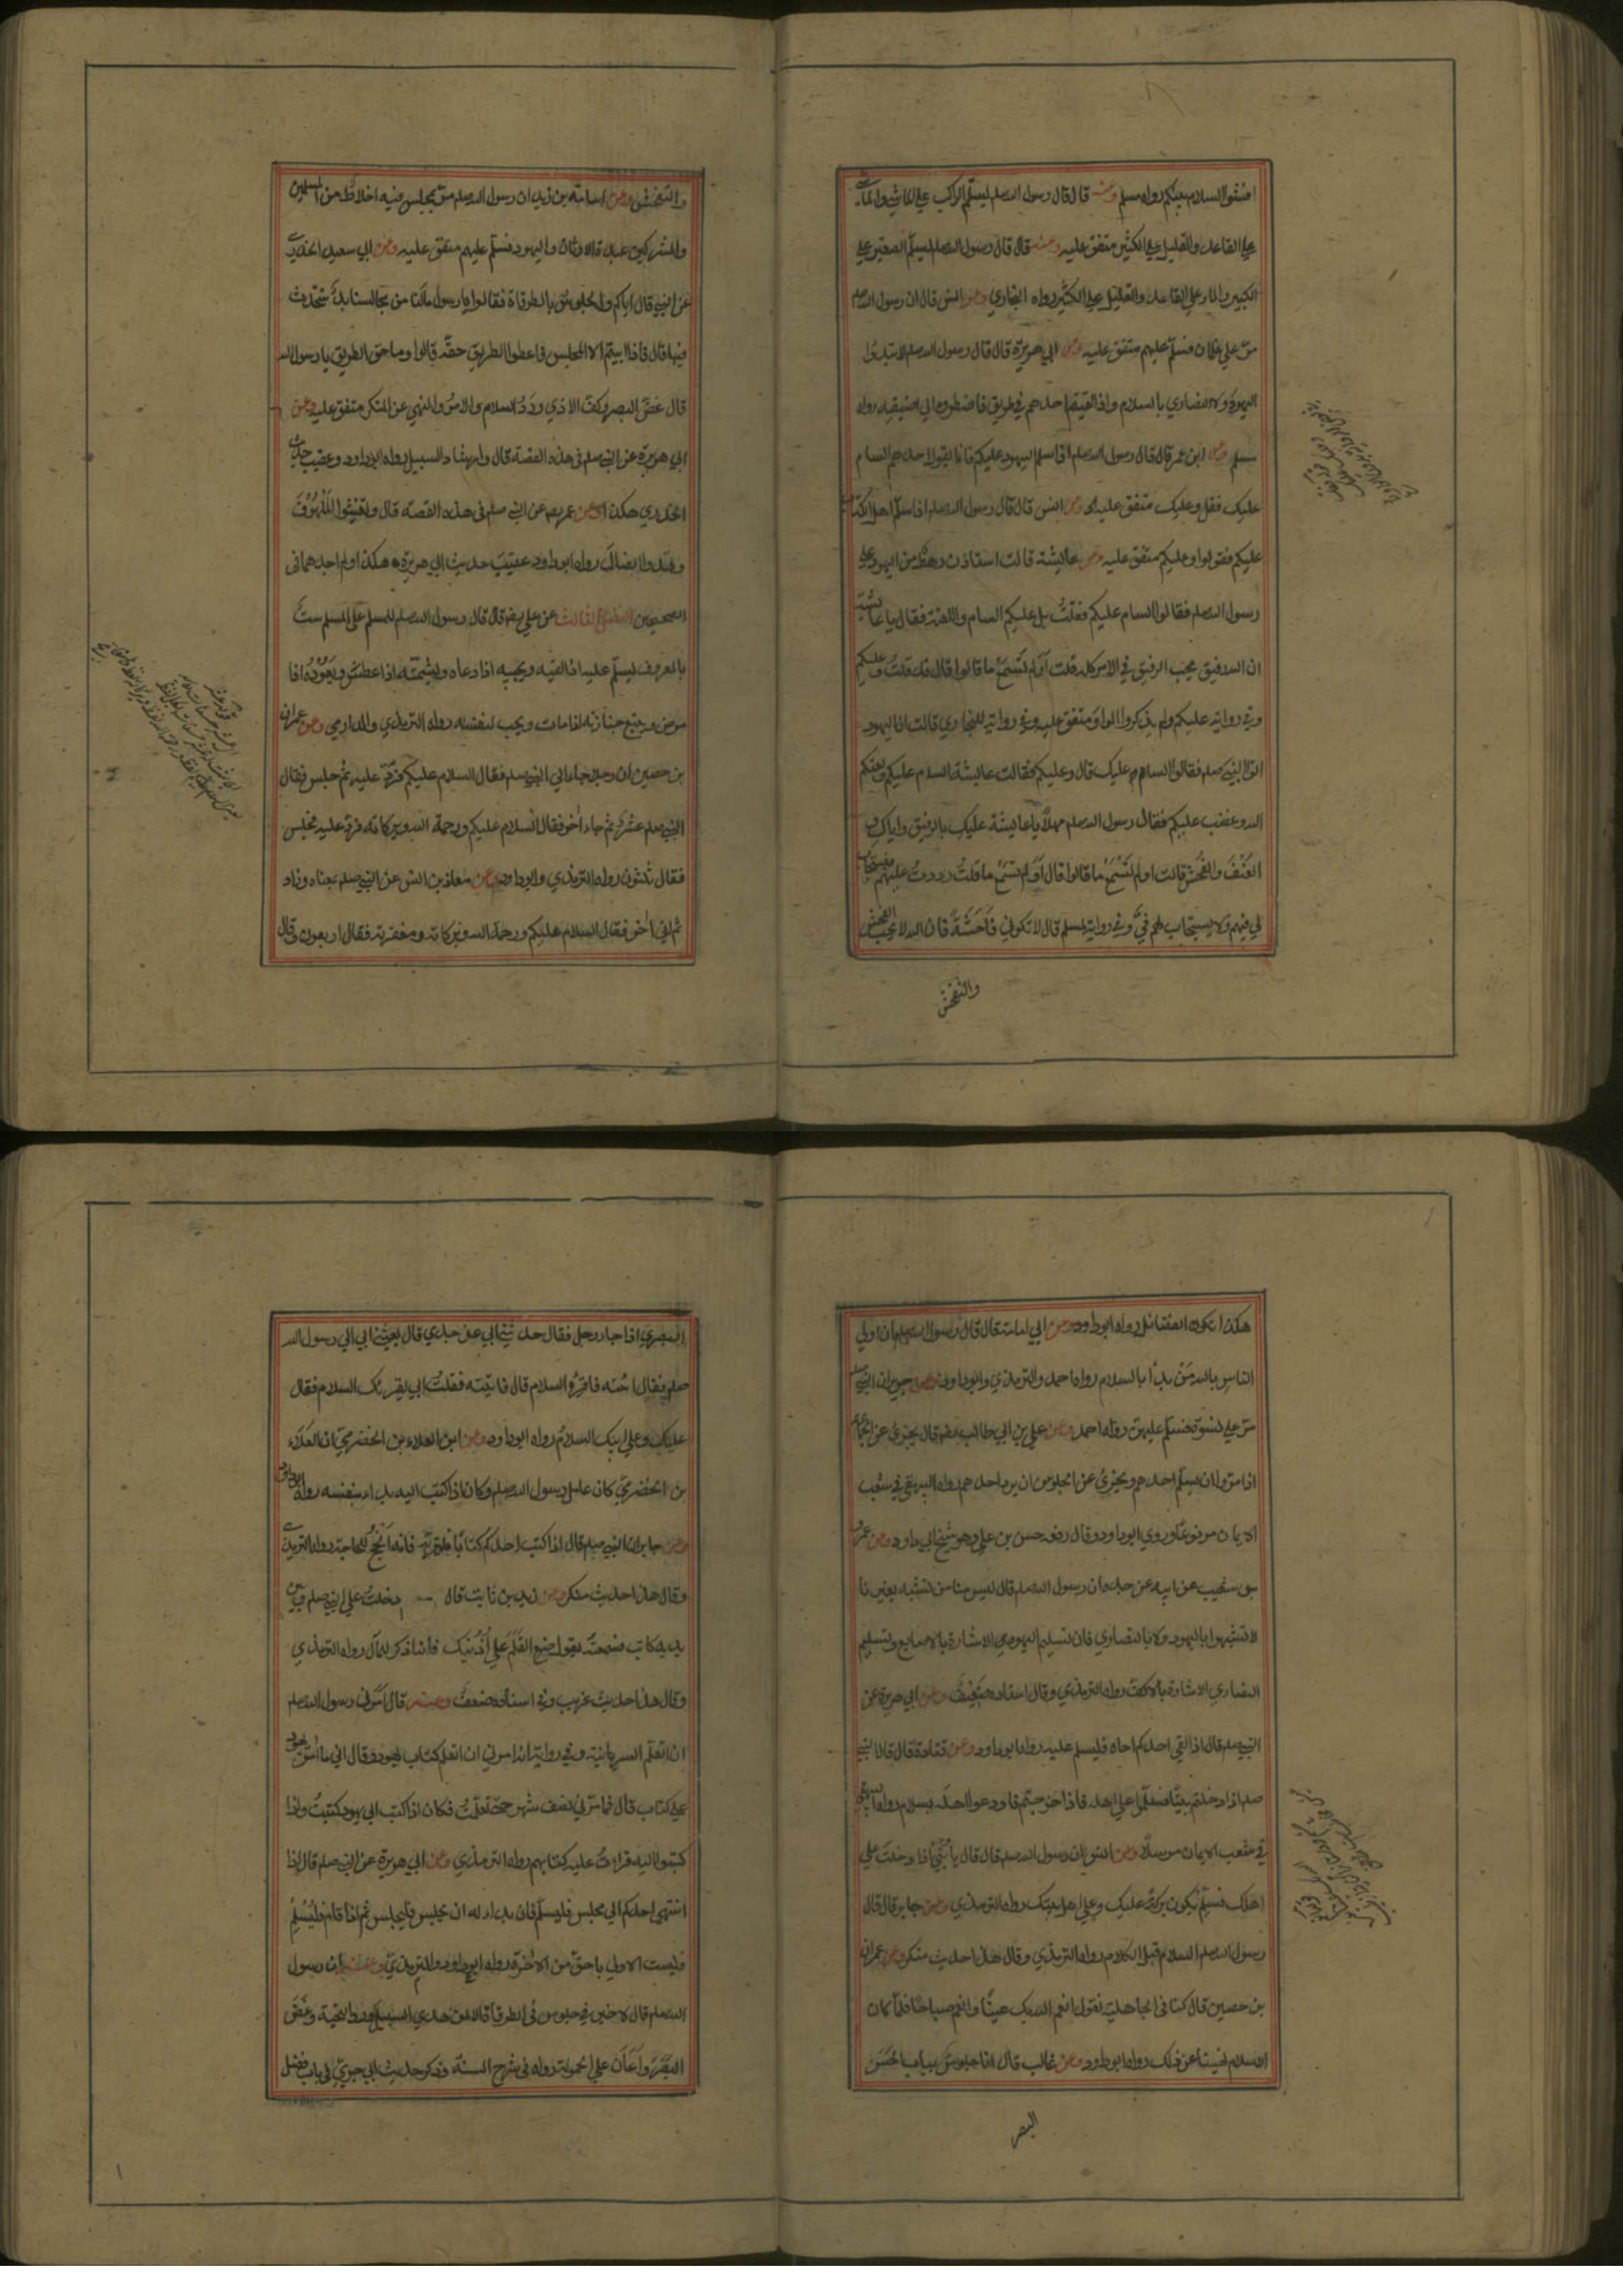 افشوا السلام بينكم رواه مسلم وعنه قال قال رسول الله صلم ليسلم الراكب علي الماشي والماشي
علي القاعد والقليل علي الكثير متفق عليه وعنه قال قال رسول الله صلم ليسلم الصغير علي
الكبير والمار علي القاعد والقليل علي الكثير رواه البخاري وعن انس قال ان رسول الله صلم
مرّ علي غلمان فسلّم عليهم متفق عليه وعن ابي هريرة قال قال رسول الله صلم لا تبدؤا
اليهودَ ولا النصاري بالسلام واذا لقيتم احدهم في طريق فاضطروه الي اضيقه رواه
مسلم وعن ابن عمر قال قال رسول الله صلم اذا سلم اليهود عليكم فانما يقول احدهم السام
عليك فقل وعليك متفق عليه وعن انس قال قال رسول الله صلم اذا سلّم اهل الكتاب
عليكم فقولوا وعليكم متفق عليه وعن عايشة قالت استاذن رهط من اليهود علي
رسول الله صلم فقالوا السام عليكم فقلتُ بل عليكم السام واللعنة فقال يا عايشة
ان الله رفيق يحب الرفيق في الامر كله قلت اَوَلم تَسْمَعْ ما قالوا قال قد قلتُ وعليكم
وفي رواية عليكم ولم يذكروا الواوَ متفق عليه وفي رواية للبخاري قالت ان اليهود
اتوا النبي صلم فقالوا السام عليك قال وعليكم فقالت عايشة السام عليكم ولعنكم
الله وغضب عليكم فقال رسول الله صلم مهلاً يا عايشة عليك بالرفيق واياك و
العُنْفَ والفُحْشَ قالت اولم تَسْمَعْ ما قالوا قال اَوَلم تَسْمَعْ ما قلتُ رددتُ عليهم فيستجاب
لي فيهم ولا يستجاب لهم فيَّ وفي رواية لمسلم قال لا تكوني فَاحِشَةً فان الله لا يحب الفحش
والتفحش
والتفحش وعن اسامة بن زيد ان رسول الله صلم مرّ بمجلس فيه اخلاطٌ من المسلمين
والمشركين عبدة الاوثان واليهود فسلّم عليهم متفق عليه وعن ابي سعيد الخدري
عن النبي قال اياكم والجلوسَ بالطرقاة فقالوا يا رسول ما لنا من مجالسنا بدٌّ نتحدث
فيها قال فاذا ابيتم الا المجلس فاعطوا الطريق حقّه قالوا وما حق الطريق يا رسول الله
قال غضّ البصر وكفّ الاذي وردّ السلام والامرُ والنهي عن المنكر متفق عليه وعن
ابي هريرة عن النبي صلم في هذه القصة قال وارشاد السبيل رواه ابو داود وعقيب حديث
الخدري هكذا وعن عمر رضه عن النبي صلم في هذه القصة قال وتغيثوا المَلْهُوفَ
وتهدوا الضالّ رواه ابو داود عقيبَ حديث ابي هريرة هكذا ولم اجدهما في
الصحيحين الفصل الثالث عن علي رضه قال قال رسول الله صلم للمسلم علي المسلم ستّ
بالمعروف يسلّم عليه اذا لقيه ويجيبه اذا دعاه ويشمّته اذا عطسَ ويَعُودُه اذا
مرض ويتبع جنازته اذا مات ويحب لنفسه رواه الترمذي والدارمي وعن عمران
بن حصين ان رجلا جاء الي النبي صلم فقال السلام عليكم فردّ عليه ثم جلس فقال
النبي صلم عشر ثم جاء اخر فقال السلام عليكم ورحمة الله وبركاته فردّ عليه فجلس
فقال ثلثون رواه الترمذي وابو داود وعن معاذ بن انس عن النبي صلم بمعناه وزاد
ثم اتي اٰخر فقال السلام عليكم ورحمة الله وبركاته ومغفرته فقال اربعون وقال
هكذا تكون الفضائل رواه ابو داود وعن ابي امامة قال قال رسول الله صلم ان اولي
الناس بالله مَنْ بدأ بالسلام رواه احمد والترمذي وابو داود وعن جرير ان النبي صلم
مرّ علي نسوة فسلّم عليهن رواه احمد وعن علي بن ابي طالب رضه قال يجزئ عن الجماعة
اذا مرّوا ان يسلّم احدهم ويجزئ عن الجلوس ان يرد احدهم رواه البيهقي في شعب
الايمان مرفوعًا وروي ابو داود وقال رفعه حسن بن علي وهو شيخ ابي داود وعن عمرو
بن شعيب عن ابيه عن جده ان رسول الله صلم قال ليس منا من تشبه بغيرنا
لا تشبهوا باليهود ولا بالنصاري فان تسليم اليهود الاشارة بالاصابع وتسليم
النصاري الاشارة بالاكفّ رواه الترمذي وقال اسناده ضعيف وعن ابي هريرة عن
النبي صلم قال اذا لقي احدكم اخاه فليسلم عليه رواه ابو داود وعن قتادة قال قال النبي
صلم اذا دخلتم بيتًا فسلّموا علي اهله فاذا خرجتم فاودعوا اهله بسلام رواه البيهقي
في شعب الايمان مرسلاً وعن انس ان رسول الله صلم قال قال يا بُنَيَّ اذا دخلتَ علي
اهلك فسلّمْ يكون بركة عليك وعلي اهل بيتك رواه الترمذي وعن جابر قال قال
رسول الله صلم السلام قبل الكلام رواه الترمذي وقال هذا حديث منكر وعن عمران
بن حصين قال كنا في الجاهلية نقول انعم الله بك عينًا وانعم صباحًا فلمّا كان
الاسلام نهينا عن ذلك رواه ابو داود وعن غالب قال انا جلوسٌ بباب الحَسَن
البصر
البصري اذا جاء رجل فقال حدثني ابي عن جدي قال بعثني ابي الي رسول الله
صلم فقال ائته فاقرِئْه السلام قال فاتيته فقلتُ ابي يقرئك السلام فقال
عليك وعلي ابيك السلام رواه ابو داود وعن ابن العلاء بن الحضرميّ ان العَلَاءَ
بن الحضرميّ كان عامل رسول الله صلم وكان اذا كتب اليه بداء بنفسه رواه ابو داود
وعن جابر ان النبي صلم قال اذا كتب احدكم كتابًا فليترّبه فانه اَنْجَحُ للحاجة رواه الترمذي
وقال هذا حديث منكر وعن زيد بن ثابت قال دخلتُ علي النبي صلم وبين
يديه كاتب فسمعته يقول ضع القَلَمَ علي اُذُنِيكَ فانه اذكر للمآل رواه الترمذي
وقال هذا حديث غريب وفي اسناده ضعفٌ وعنه قال اَمَرني رسول الله صلم
ان اتعلّم السريانية وفي رواية انه امرني ان اتعلم كتاب يهود وقال اني ما اٰمَنُ يهود
علي كتاب قال فما مرّ بي نصف شهر حتي تعلّمتُ فكان اذا كتب الي يهود كتبتُ واذا
كتبوا اليه قراءتُ عليه كتابهم رواه الترمذي وعن ابي هريرة عن النبي صلم قال اذا
انتهي احدكم الي مجلس فليسلّم فان بداء له ان يجلس فليجلس ثم اذا قام فليُسَلِّمْ
فليست الاولي باحقّ من الاٰخرة رواه ابو داود والترمذي وعنه ان رسول
الله صلم قال لا خير في جلوس في الطرقاة الا لمن هدي السبيل وردّ التحية وغضّ
البَصَرَ واَعَانَ علي الحمولة رواه في شرح السنّة وذكر حديث ابي جريّ في باب فضل